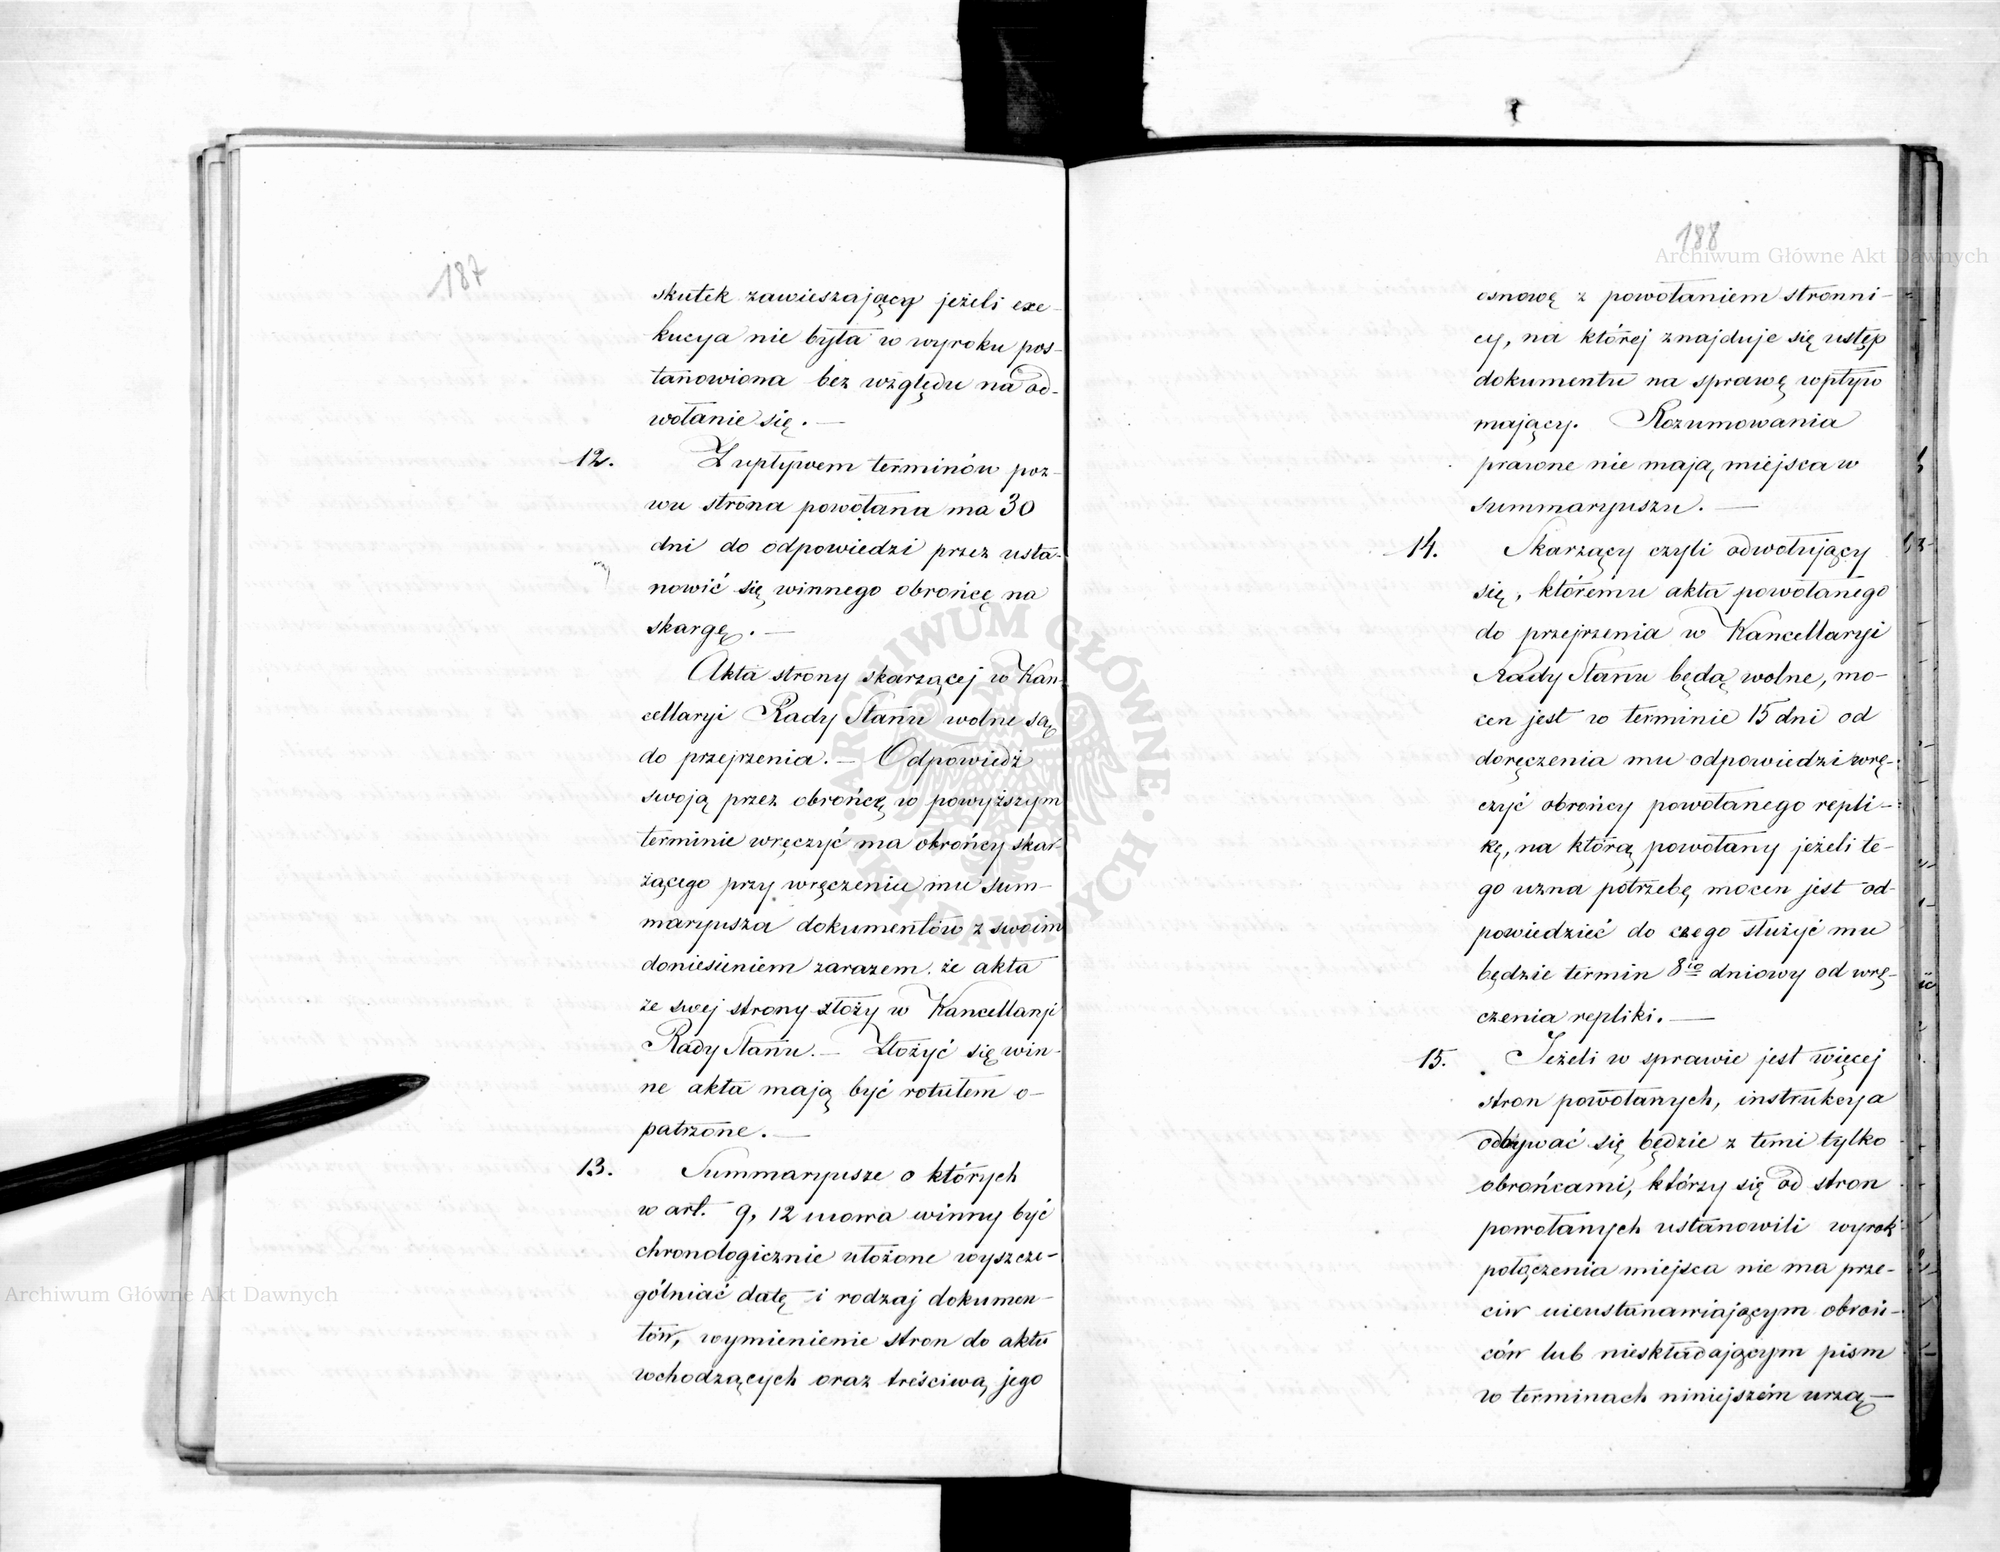 187
skutek zawieszający jeżeli exe-
kucya nie była w wyroku pos-
tanowiona bez względu na od-
wołanie się. —
12. Z upływem terminów poz-
wu strona powołana ma 30
dni do odpowiedzi przez usta-
nowić się winnego obrońcę na
skargę. —
Akta strony skarzącej w Kan-
cellaryi Rady Stanu wolne są
do przejrzenia. — Odpowiedź
swoją przez obrońcę w powyższym
terminie wręczyć ma obrońcy skar-
żącego przy wręczeniu mu sum-
maryusza dokumentów z swoim
doniesieniem zarazem że akta
ze swej strony złoży w Kancellaryi
Rady Stanu. — Złożyć się win-
ne akta mają być rotułem o-
patrzone. —
13. Summaryusze o których
w art. 9, 12 mowa winny być
chronologicznie ułożone wyszcze-
gólniać datę i rodzaj dokumen-
tów, wymienienie stron do aktu
wchodzących oraz treściwą jego
188
osnowę z powołaniem stronni-
cy, na której znajduje się ustęp
dokumentu na sprawę wpływ
mający. Rozumowania
prawne nie mają miejsca w
summaryuszu. —
14. Skarzący czyli odwołujący
się, któremu akta powołanego
do przejrzenia w Kancellaryi
Rady Stanu będą wolne, mo-
cen jest w terminie 15 dni od
doręczenia mu odpowiedzi wrę-
czyć obrońcy powołanego repli-
kę, na którą powołany jeżeli te-
go uzna potrzebę mocen jest od-
powiedzieć do czego służyć mu
będzie termin 8io dniowy od wrę-
czenia repliki. —
15. Jeżeli w sprawie jest więcej
stron powołanych, instrukcya
odbywać się będzie z temi tylko
obrońcami, którzy się od stron
powołanych ustanowili wyrok
połączenia miejsca nie ma prze-
ciw nieustanawiającym obroń-
ców lub nieskładającym pism
w terminach niniejszém urzą-
Archiwum Główne Akt Dawnych
Archiwum Główne Akt Dawnych
ARCHIWUM GŁÓWNE · AKT DAWNYCH ·